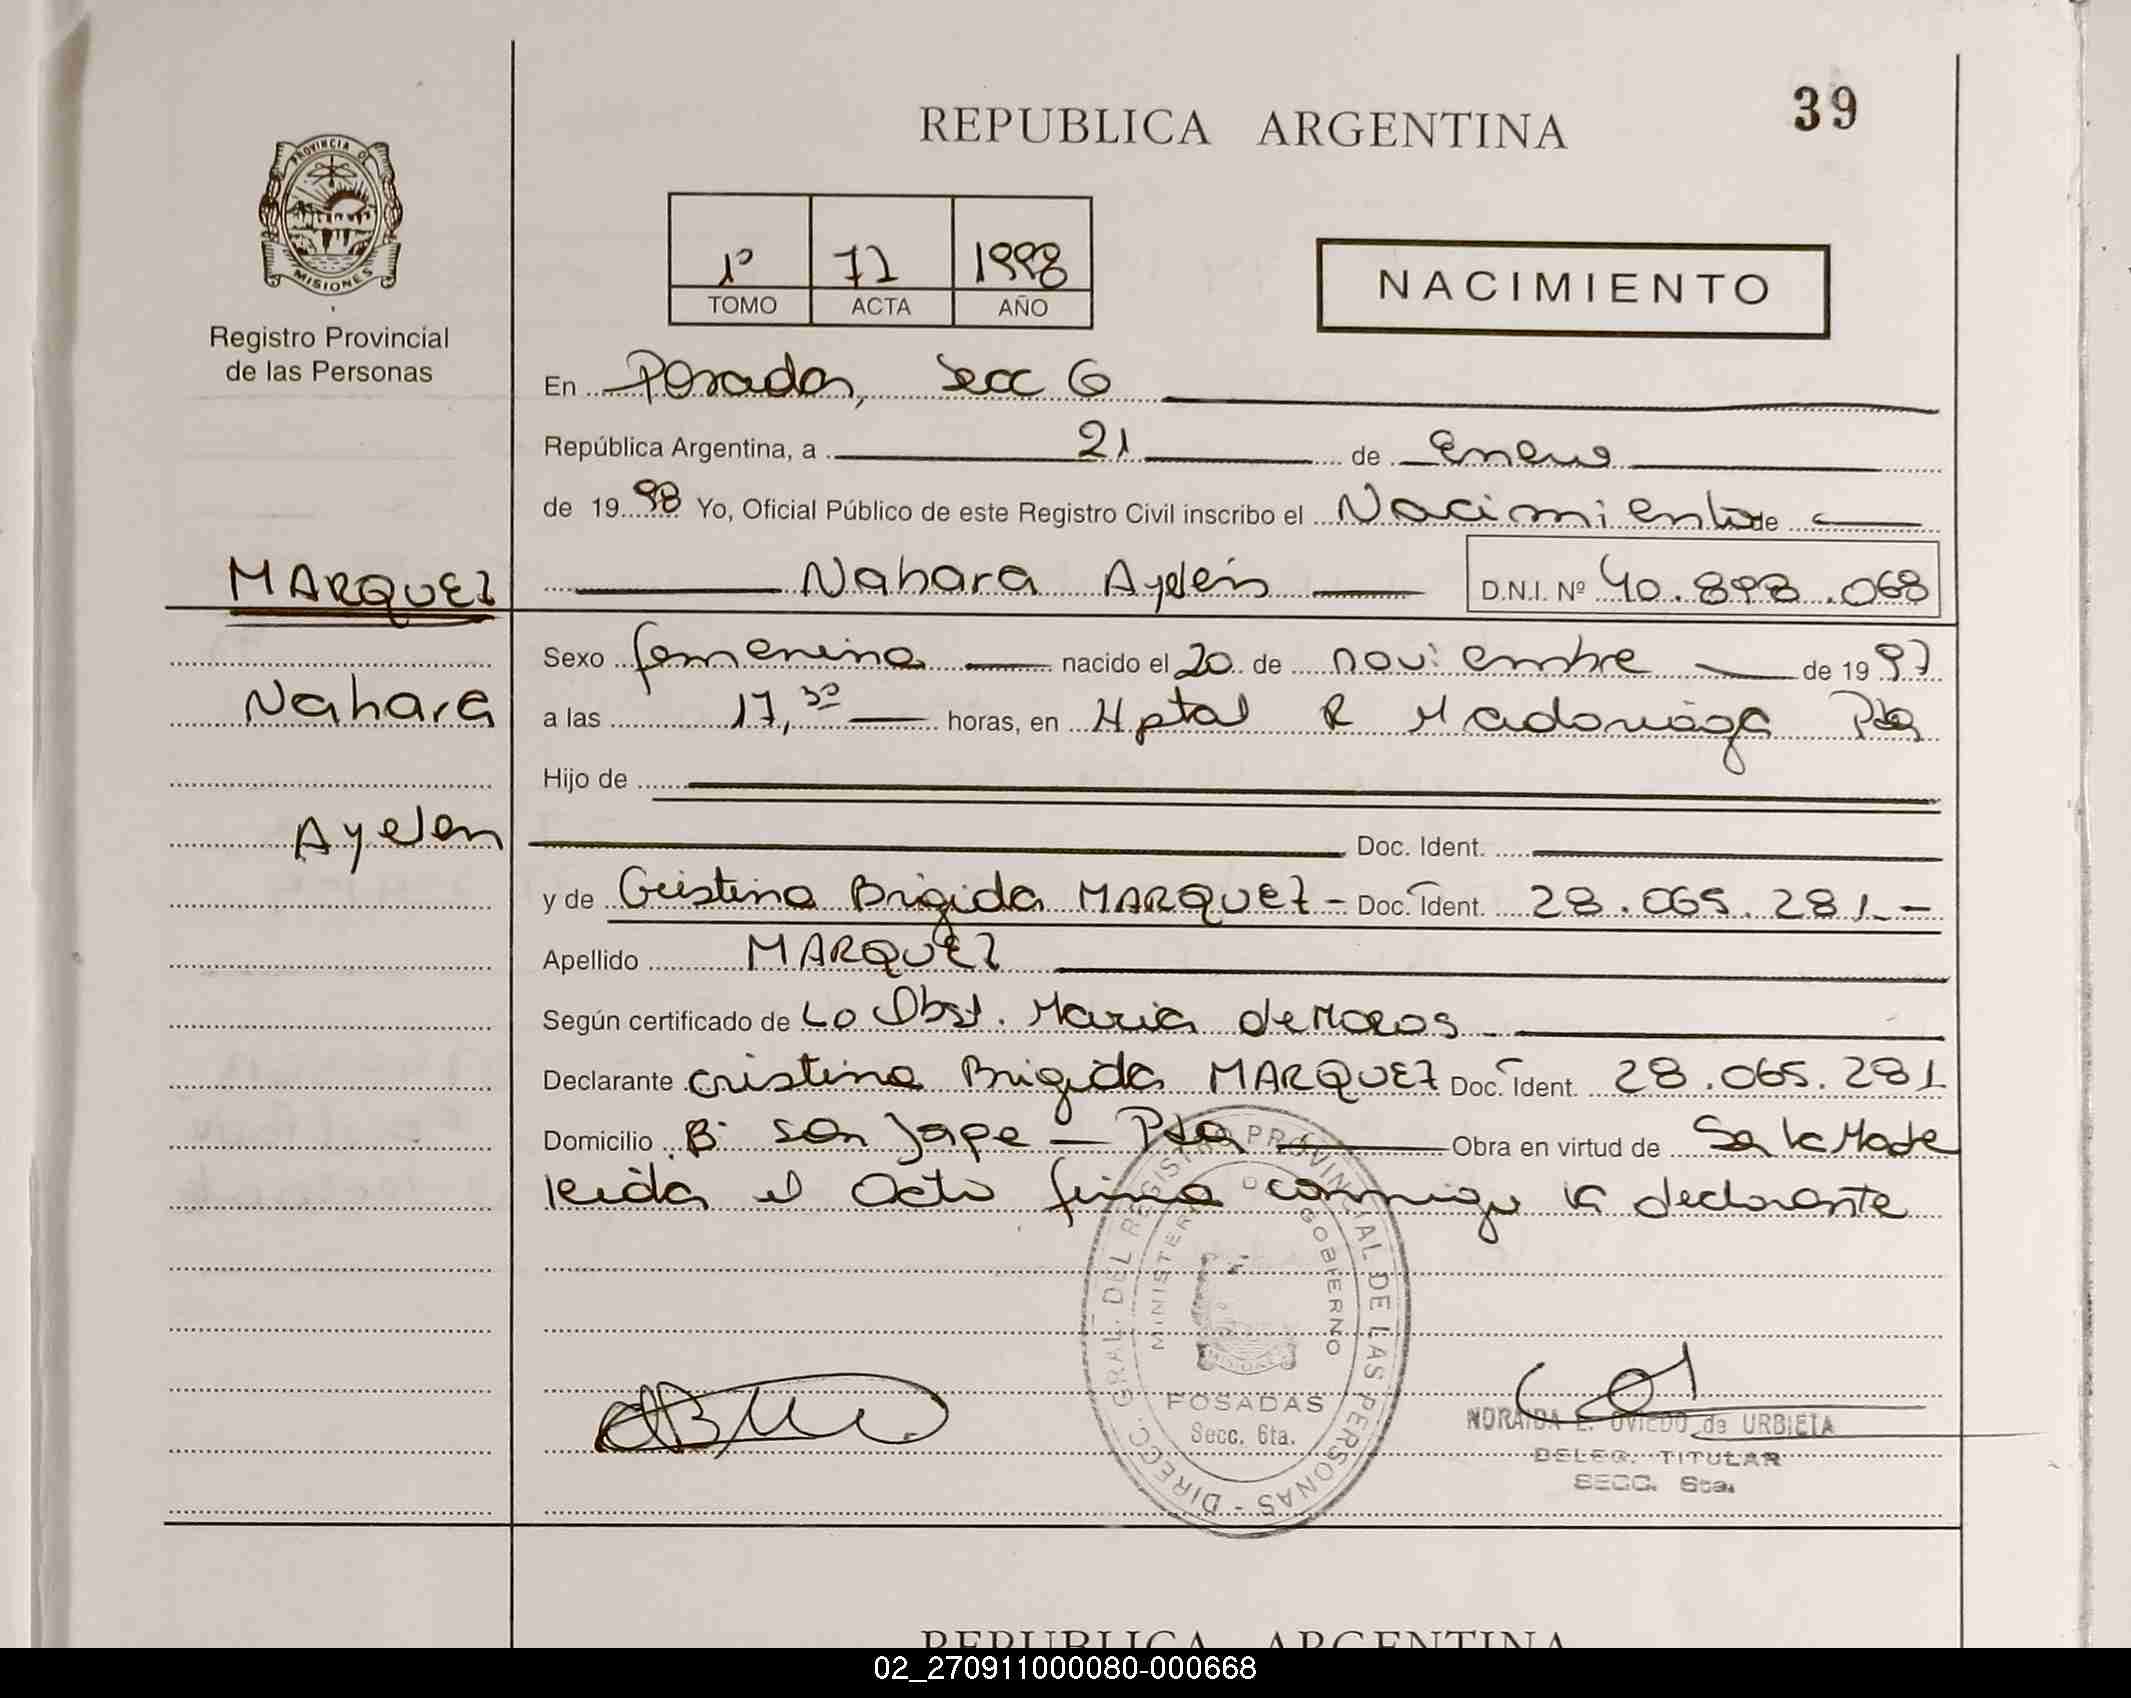 39
REPUBLICA ARGENTINA
PROVINCIA DE
MISIONES
Registro Provincial
de las Personas
1º 71 1998
TOMO ACTA AÑO
NACIMIENTO
En Posadas, Secc 6
República Argentina, a 21 de Enero
de 1998 Yo, Oficial Público de este Registro Civil inscribo el Nacimiento de
MARQUEZ
Nahara Ayelén D.N.I. Nº 40.898.068
Sexo femenino nacido el 20 de noviembre de 1997
Nahara
a las 17,30 horas, en Hptal R Madariaga Pdas
Hijo de
Ayelen
Doc. Ident.
y de Cristina Brigida MARQUEZ - Doc. Ident. 28.065.281.-
Apellido MARQUEZ
Según certificado de La Obst. Maria
Declarante Cristina Brigida MARQUEZ Doc. Ident. 28.065.281
Domicilio Bº San Jorge - Pdas Obra en virtud de Ser la Madre
leida el Acta firma conmigo la declarante
DIRECC. GRAL. DEL REGISTRO PROVINCIAL DE LAS PERSONAS -
MINISTERIO GOBIERNO
MISIONES
POSADAS
Secc. 6ta.
NORAIDA E. OVIEDO de URBIETA
DELEG. TITULAR
SECC. 6ta.
REPUBLICA ARGENTINA
02_270911000080-000668